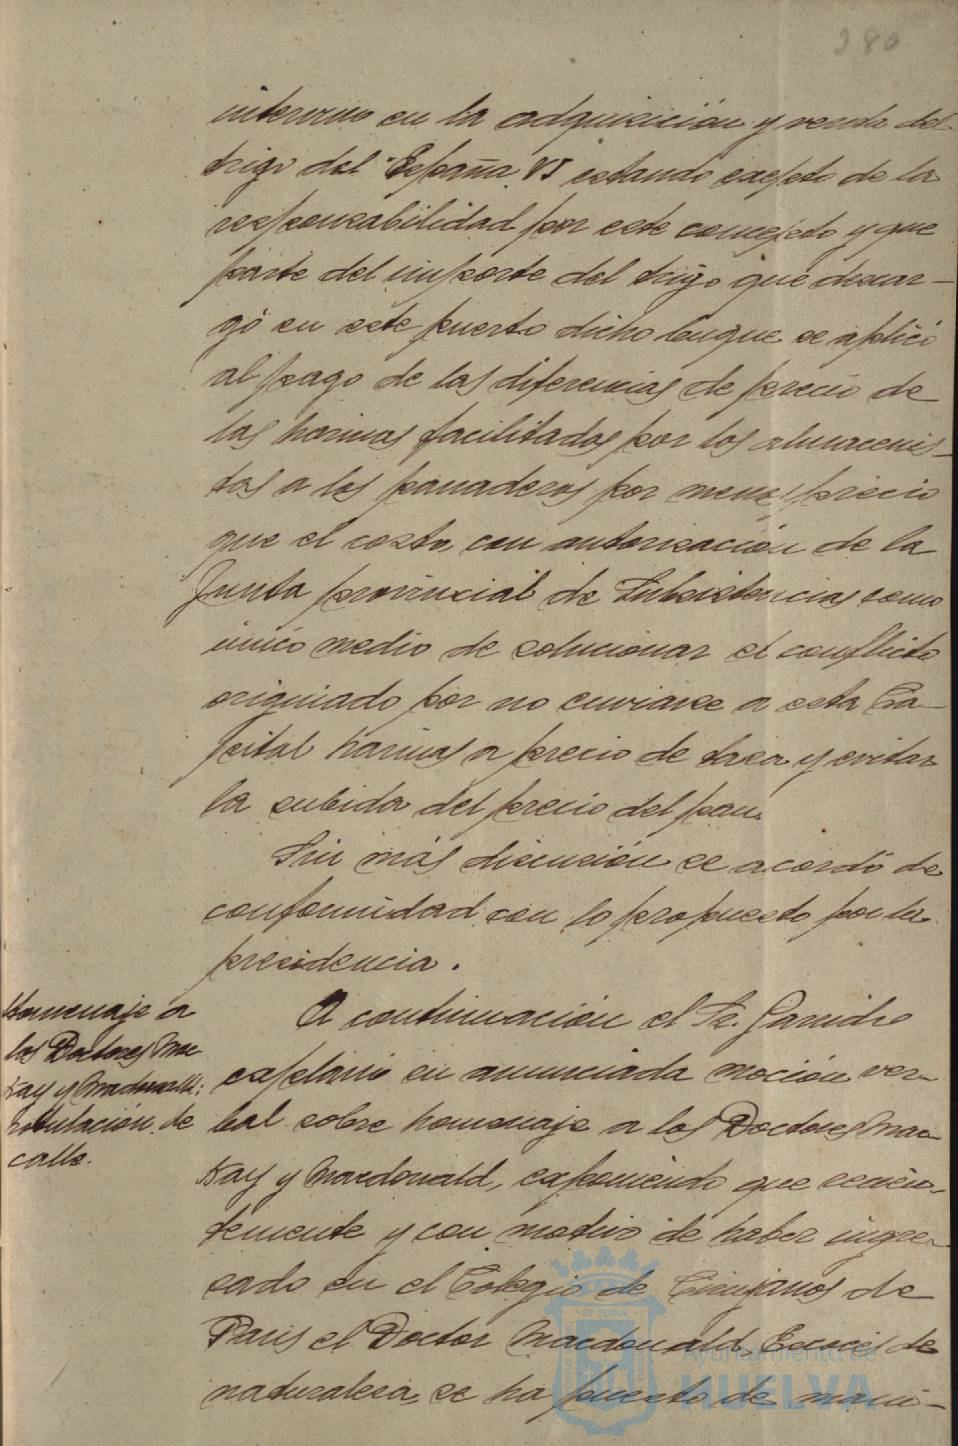 380
intervino en la adquisición y venta del
trigo del "España VI" estando exento de la
responsabilidad por este concepto y que
parte del importe del trigo que descar-
gó en este puerto dicho buque se aplicó
al pago de las diferencias de precio de
las harinas facilitadas por los almacenis-
tas a los panaderos por menos precio
que el costo, con autorización de la
Junta provincial de Subsistencias como
único medio de solucionar el conflicto
originado por no enviarse a esta Ca-
pital harinas a precio de tasa y evitar
la subida del precio del pan.
Sin más discusión se acordó de
conformidad con lo propuesto por la
presidencia.
Homenaje a
los Doctores Mac
Kay y Macdonald:
rotulación de
calle.
A continuación el Sr. Garrido
explanó su anunciada moción ver-
bal sobre homenaje a los Doctores Mac-
Kay y Macdonald, exponiendo que recien-
temente y con motivo de haber ingre-
sado en el Colegio de Cirujanos de
Paris el Doctor Macdonald, Escocés de
naturaleza, se ha puesto de mani-
Ayuntamiento de
HUELVA